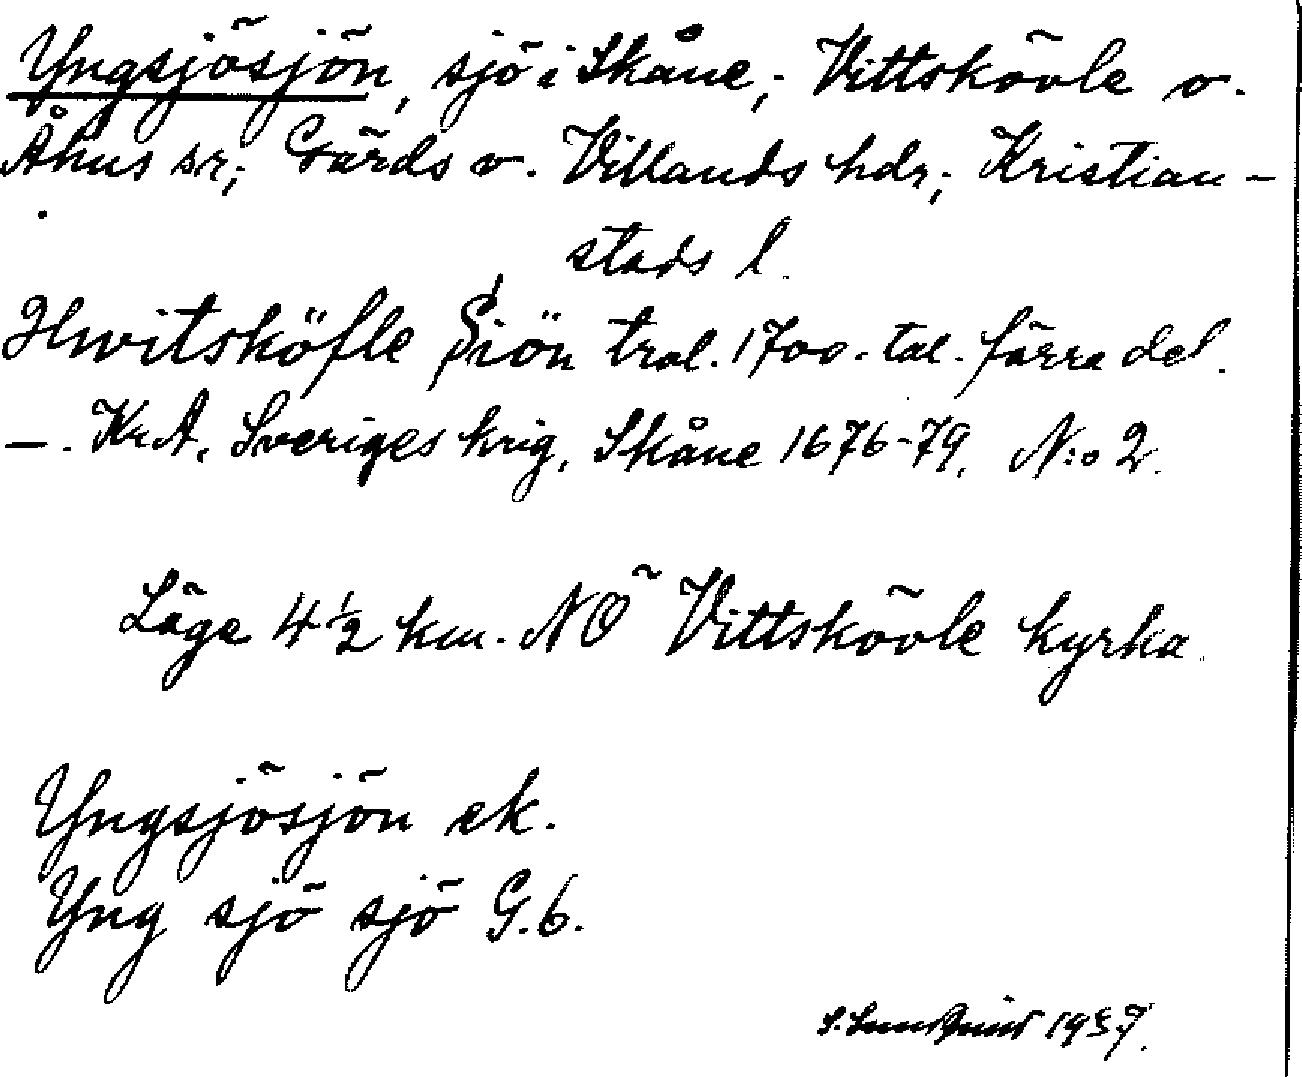 Yngsjösjön, sjö i Skåne; Vittskövle o.
Åhus sr; Gärds o. Villands hdr; Kristian-
stads l.
Hwitsköfle Siön trol. 1700-tal. färra del.
—. KrA. Sveriges krig, Skåne 1676-79. N:o 2.
Läge 4 ½ km. NÖ Vittskövle kyrka.
Yngsjösjön ek.
Yng sjö sjö G.6.
1957.